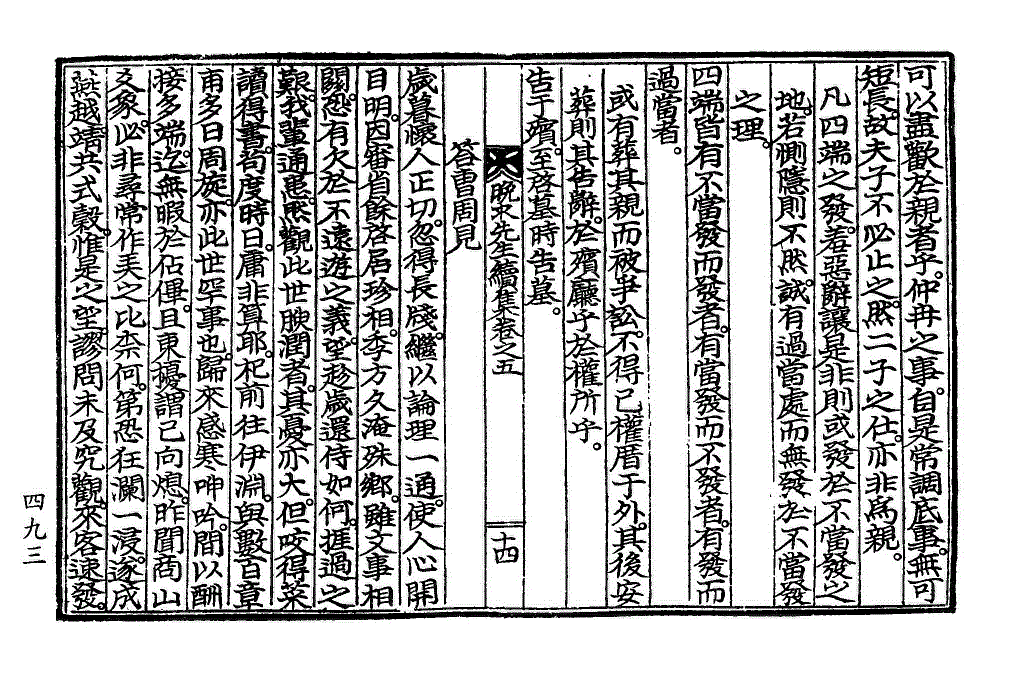 可以盡歡於親者乎。仲冉之事。自是常調底事。無可
短長。故夫子不必止之。然二子之仕。亦非爲親。
凡四端之發。羞惡辭讓是非則或發於不當發之
地。若惻隱則不然。誠有過當處而無發於不當發
之理。
四端皆有不當發而發者。有當發而不發者。有發而
過當者。
或有葬其親而被爭訟。不得已權厝于外。其後安
葬則其告辭。於殯廳乎於權所乎。
告于殯。至啓墓時告墓。
晩求先生續集卷之五
十四
答曺周見
歲暮懷人正切。忽得長牋。繼以論理一通。使人心開
目明。因審省餘啓居珍相。李方久淹殊鄕。雖文事相
關。恐有欠於不遠遊之義。望趁歲還侍如何。捱過之
艱。我輩通患。然觀此世腴潤者。其憂亦大。但咬得菜
讀得書。苟度時日。庸非算耶。祀前往伊淵。與數百章
甫多日周旋。亦此世罕事也。歸來感寒呻吟。間以酬
接多端。迄無暇於佔俾。且東擾謂已向熄。昨聞商山
文象。必非尋常作美之比柰何。第恐狂瀾一浸。遂成
燕越靖共式穀。惟是之望。謬問未及究觀。來客速發。
四九三